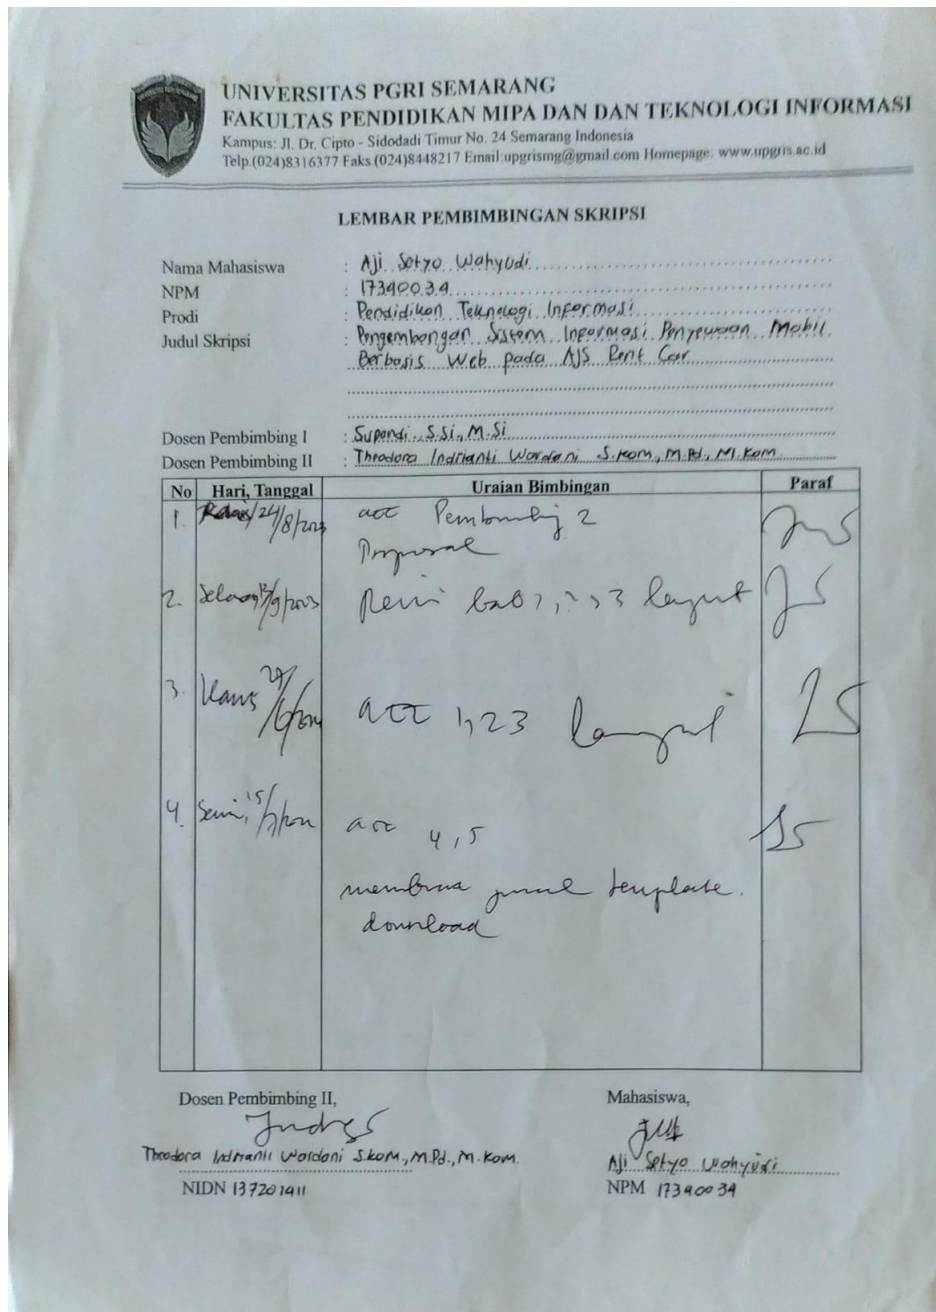 UNIVERSITAS PGRI SEMARANG
FAKULTAS PENDIDIKAN MIPA DAN DAN TEKNOLOGI INFORMASI
Kampus: Jl. Dr. Cipto - Sidodadi Timur No. 24 Semarang Indonesia
Telp.(024)8316377 Faks (024)8448217 Email:upgrismg@gmail.com Homepage: www.upgris.ac.id
LEMBAR PEMBIMBINGAN SKRIPSI
Nama Mahasiswa : Aji Setyo Wahyudi
NPM : 17390034
Prodi : Pendidikan Teknologi Informasi
Judul Skripsi : Pengembangan Sistem Informasi Penyewaan Mobil
Berbasis Web pada AJS Rent Car
Dosen Pembimbing I : Supandi, S.Si, M.Si
Dosen Pembimbing II : Theodora Indrianti Wardani S.Kom, M.Pd, M.Kom
No Hari, Tanggal Uraian Bimbingan Paraf
1. 24/8/2023 acc Pembimbing 2
Proposal
2. Selasa Revisi bab 1, 2, 3 lanjut
3. Kamis 27/6/ acc 1, 2 3 lanjut
4. Senin, 15/7/ acc 4, 5
membuat jurnal template.
download
Dosen Pembimbing II, Mahasiswa,
Theodora Indrianti Wardani S.Kom., M.Pd., M.Kom. Aji Setyo Wahyudi
NIDN 137201411 NPM 17390034